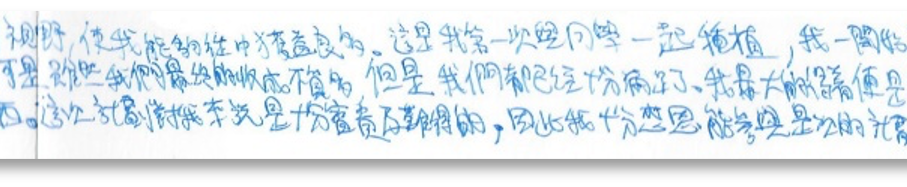 視野,使我能夠從中獲益良多。這是我第一次與同學一起種植,我一開始
可是雖然我們最終的收成不質的,但是我們都已經十分滿足了。我最大的得著便是
西。這次計劃對我來說是十分寶貴及難得的,因此我十分感恩能參與是次的計劃